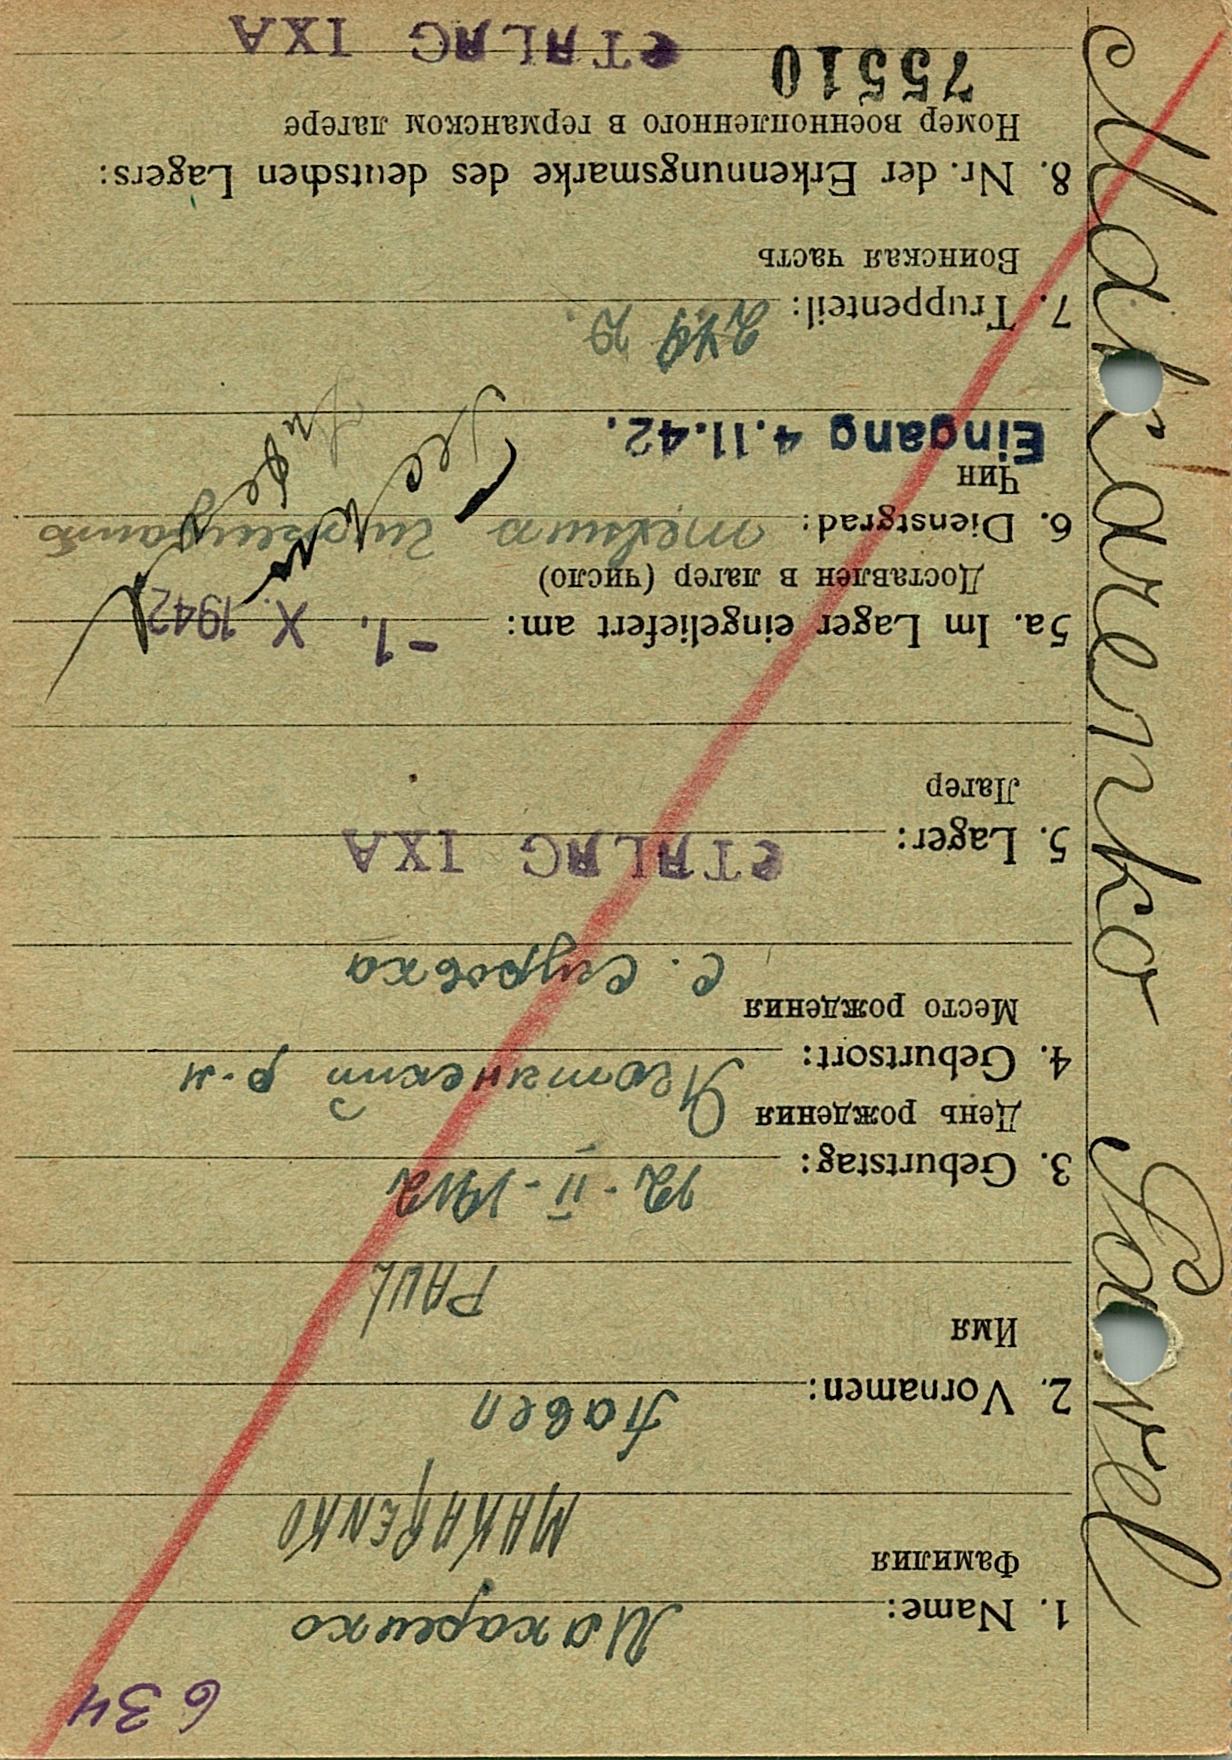 634
1. Name: Макаренко
Фамилия
MAKARENKO
2. Vornamen: Павел
Имя
PAUL
3. Geburtstag: 12-II-1912
День рождения
4. Geburtsort: Яготинский р-н
Место рождения
с. Супровка
5. Lager: STALAG IXA
Лагер
5a. Im Lager eingeliefert am: -1. X. 1942
Доставлен в лагер (число)
6. Dienstgrad:
Чин
Eingang 4.11.42.
7. Truppenteil:
Воинская часть
8. Nr. der Erkennungsmarke des deutschen Lagers:
Номер военнопленного в германском лагере
75510
STALAG IXA
Makarenko Pavel